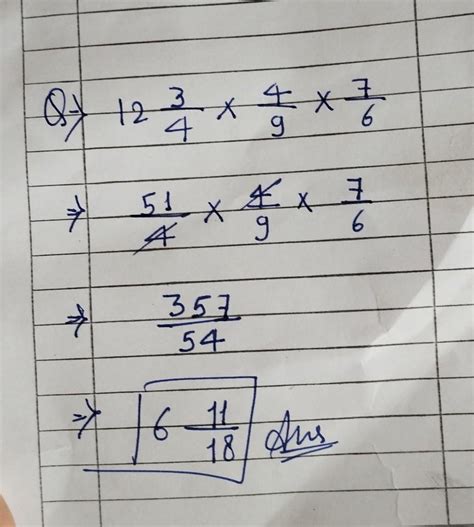 Q⇒ 12 3/4 × 4/9 × 7/6
⇒ 51/4 × 4/9 × 7/6
⇒ 357/54
⇒ 6 11/18 Ans